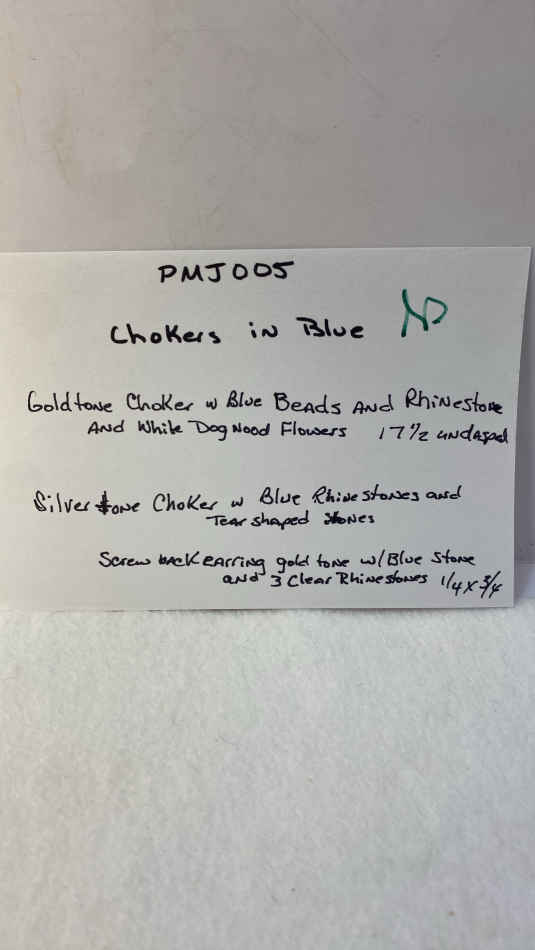 PMJ005
Chokers in Blue
Goldtone Choker w Blue Beads And Rhinestone
And White Dog Wood Flowers 17 1/2 unclasped
Silver tone Choker w Blue Rhinestones and
Tear shaped stones
Screw back earring gold tone w/ Blue Stone
and 3 Clear Rhinestones 1/4 x 3/4